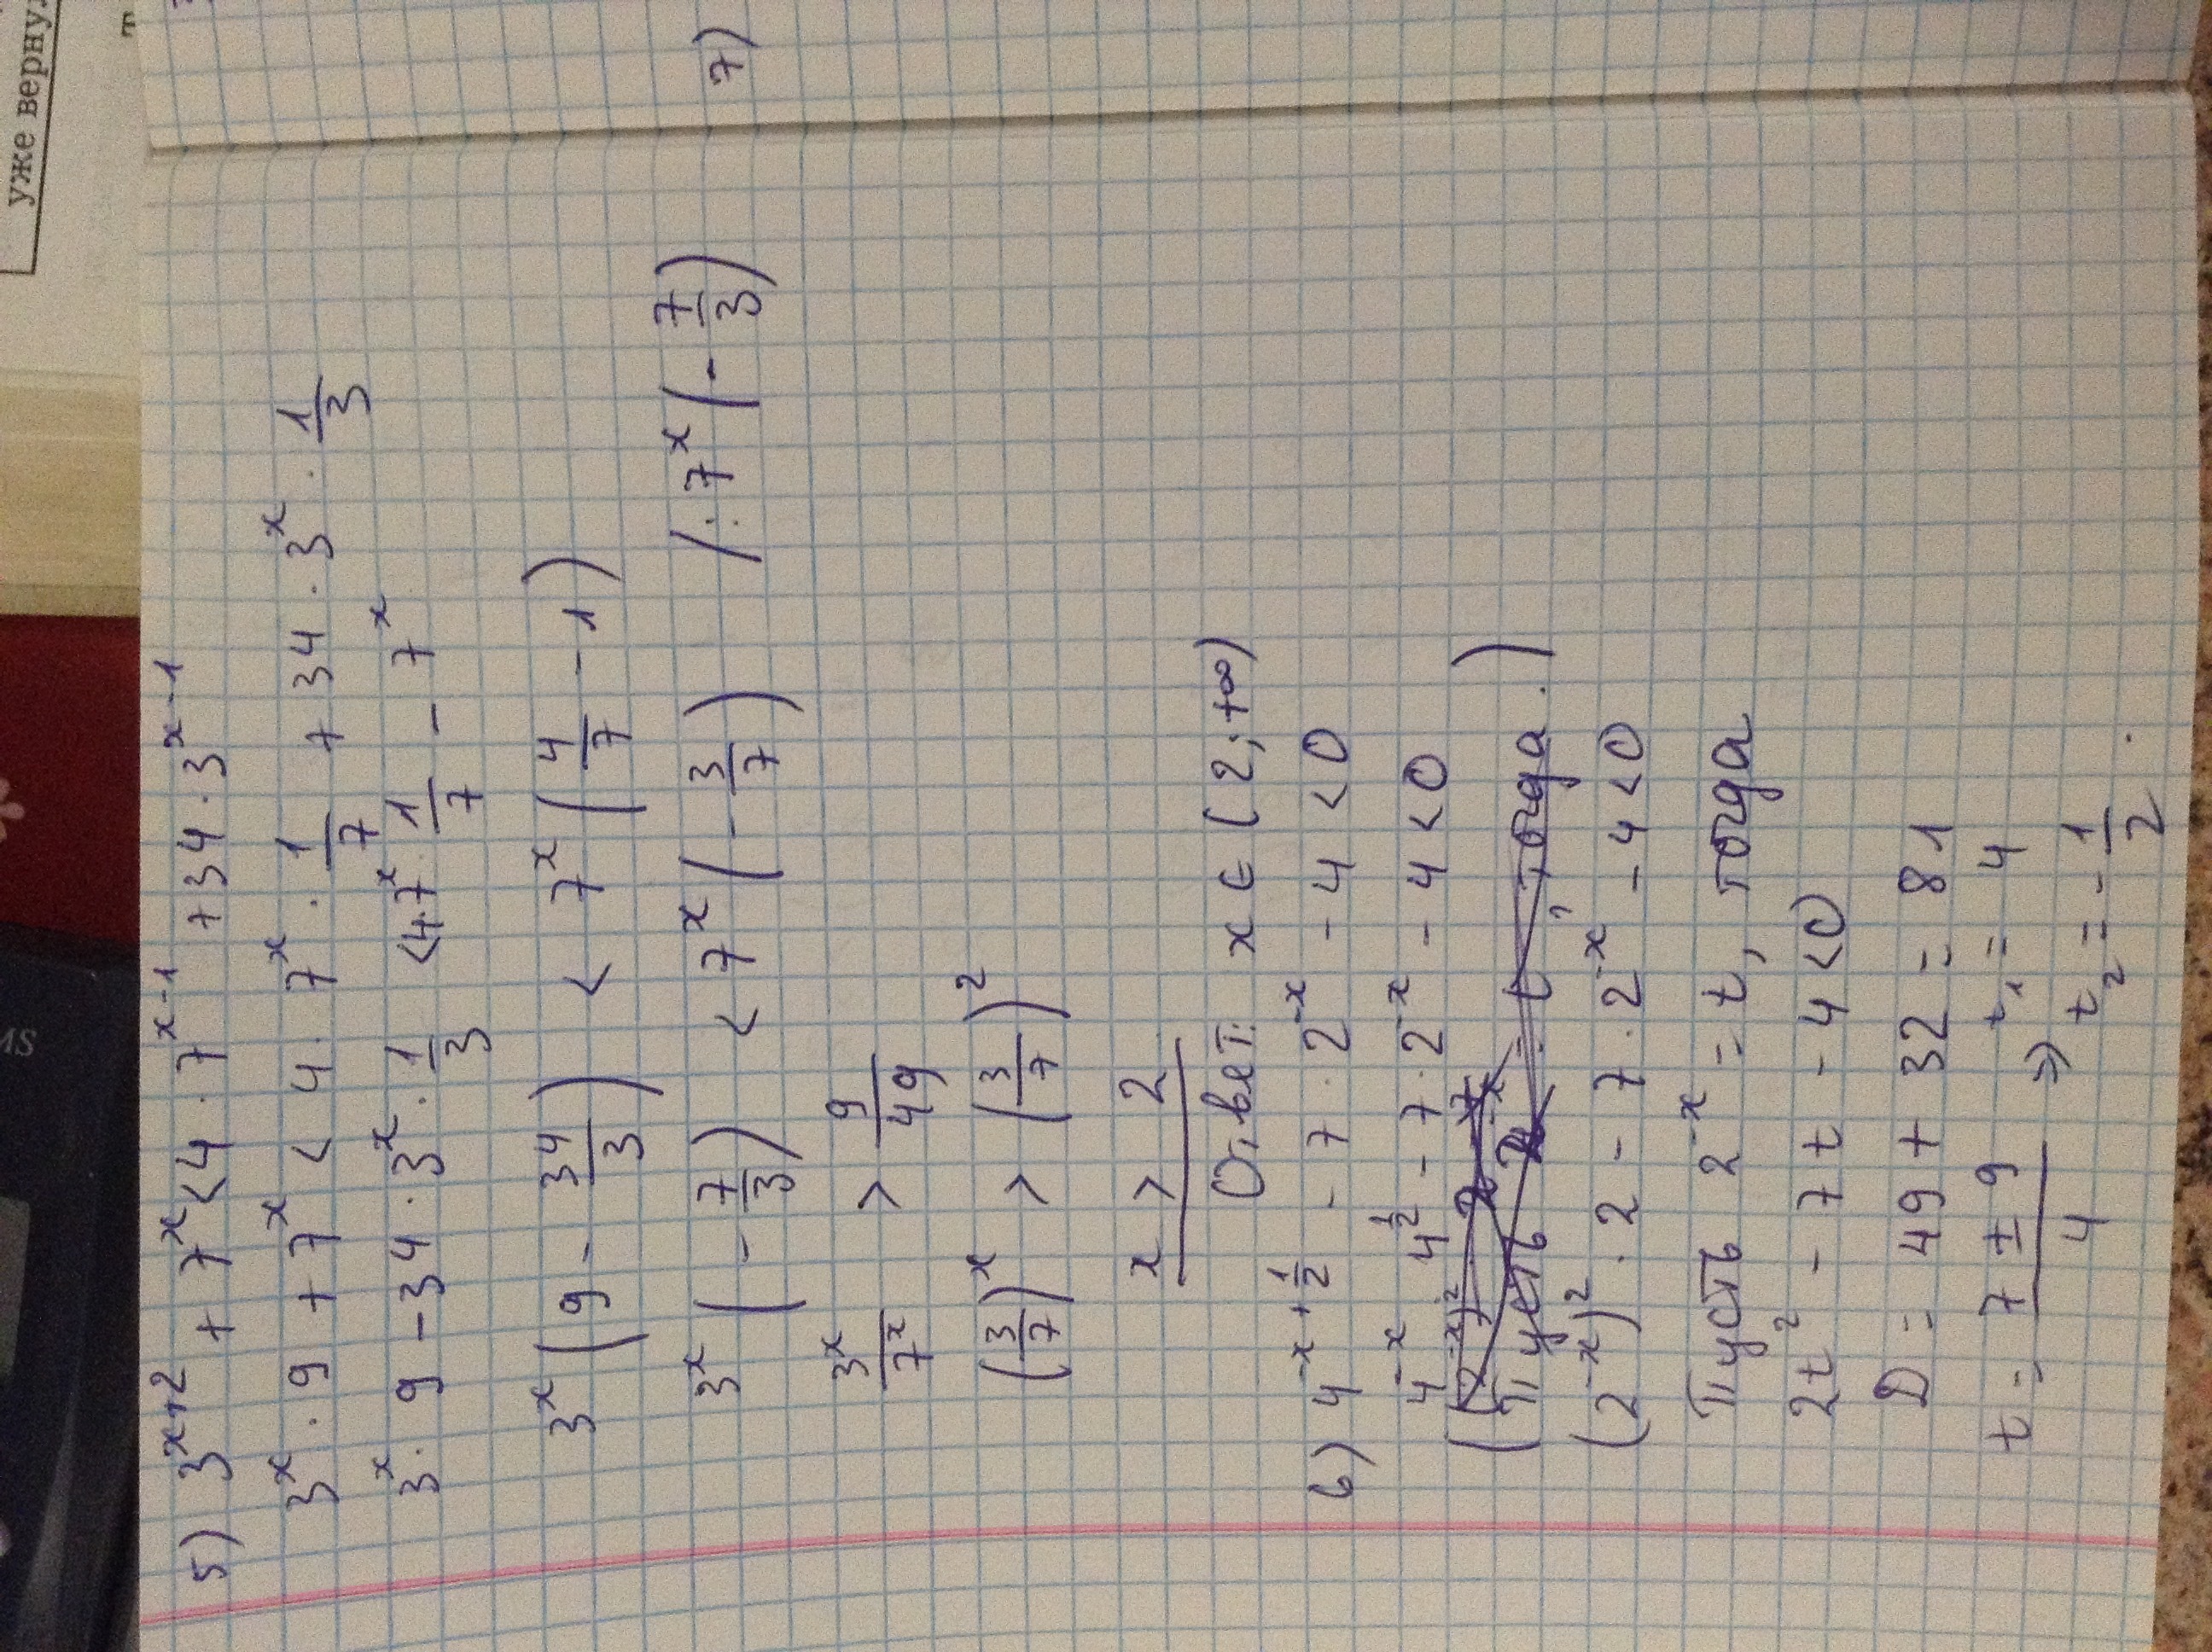 уже верну
MS
5) 3^(x+2) + 7^x < 4 · 7^(x-1) + 34 · 3^(x-1)
3^x · 9 + 7^x < 4 · 7^x · 1/7 + 34 · 3^x · 1/3
3^x · 9 - 34 · 3^x · 1/3 < 4·7^x · 1/7 - 7^x
3^x (9 - 34/3) < 7^x (4/7 - 1)
3^x (- 7/3) < 7^x (- 3/7) /: 7^x (- 7/3)
3^x/7^x > 9/49
(3/7)^x > (3/7)^2
x > 2
Ответ: x ∈ (2; +∞)
6) 4^(-x + 1/2) - 7 · 2^(-x) - 4 < 0
4^(-x) 4^(1/2) - 7 · 2^(-x) - 4 < 0
Пусть = t, тогда
(2^(-x))^2 · 2 - 7 · 2^(-x) - 4 < 0
Пусть 2^(-x) = t, тогда
2t^2 - 7t - 4 < 0
D = 49 + 32 = 81
t = (7 ± 9)/4 ⇒ t_1 = 4
t_2 = - 1/2
7)